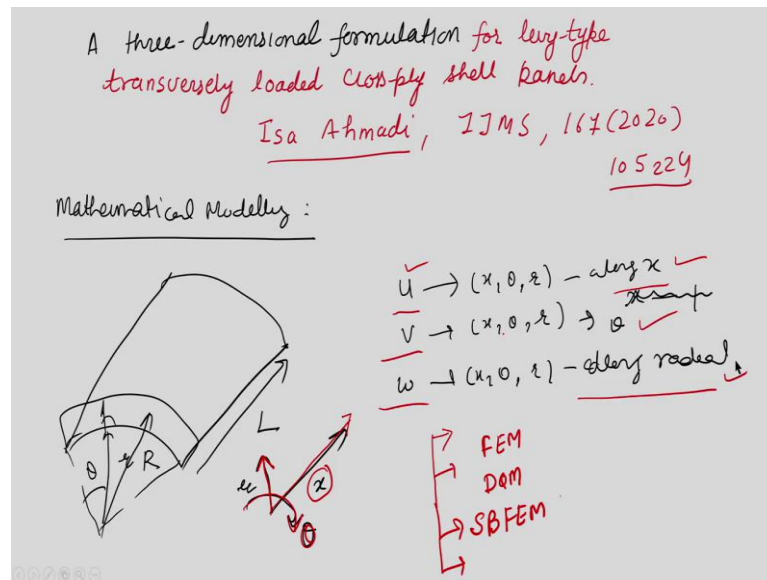 A three-dimensional formulation for levy-type
transversely loaded cross-ply shell panels.
Isa Ahmadi, IJMS, 167 (2020)
105224
Mathematical Modelling :
u → (x, θ, r) - along x
v → (x, θ, r) → θ
w → (x, θ, r) - along radial
θ r R L
r x θ
FEM
DQM
SBFEM